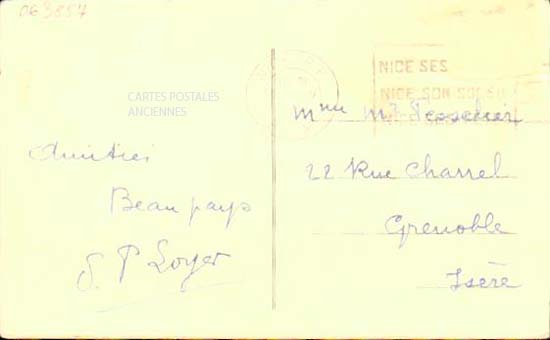 063857
NICE SES
NICE SON SOLEIL
CARTES POSTALES
ANCIENNES
Amitiés
Beau pays
S. P Loyer
Mme Mt
22 Rue Charrel
Grenoble
Isère